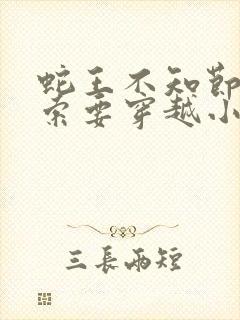 蛇王不知節
索要穿越小
三長兩短